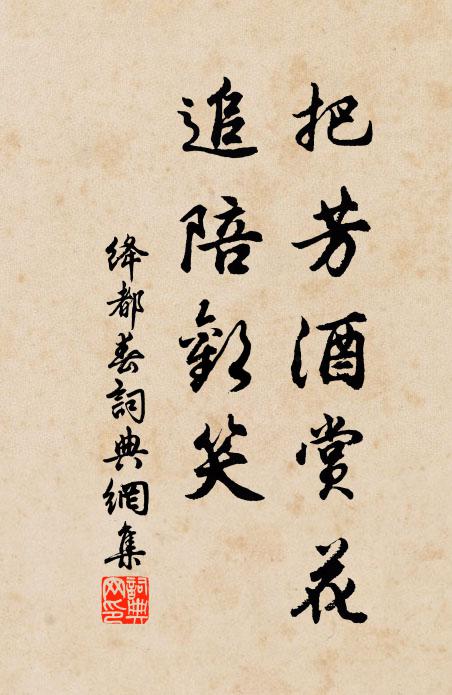 把芳酒賞花
追陪歡笑
絳都春詞典網集
詞典
网印